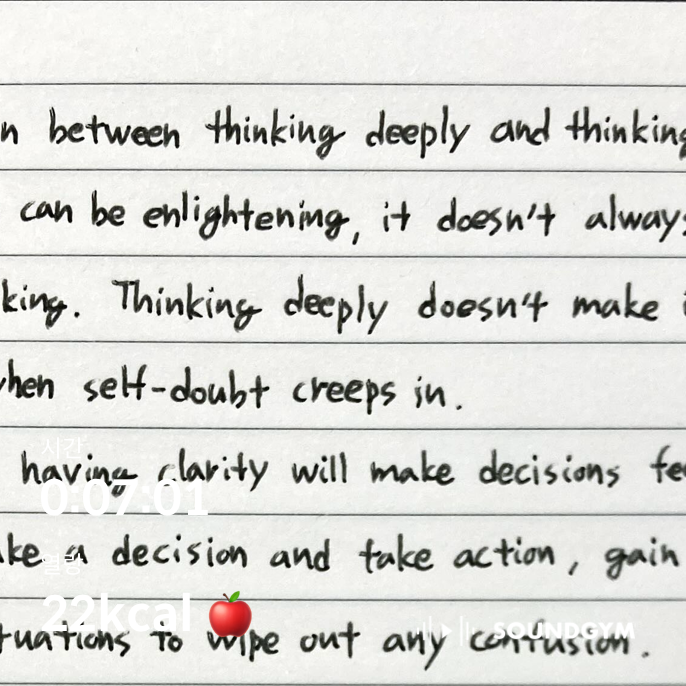 n between thinking deeply and thinking
can be enlightening, it doesn't always
king. Thinking deeply doesn't make i
when self-doubt creeps in.
시간
having clarity will make decisions fee
0:07:01
ake a decision and take action, gain
열량
22kcal
SOUNDGYM
tuations to wipe out any confusion.